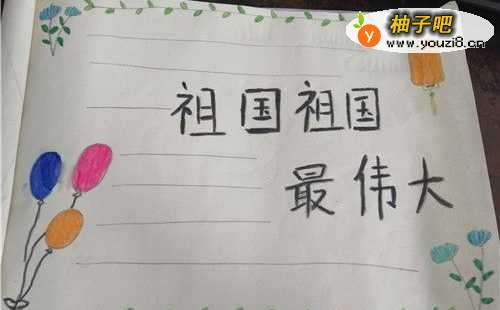 柚子吧
www.youzi8.cn
祖国祖国
最伟大